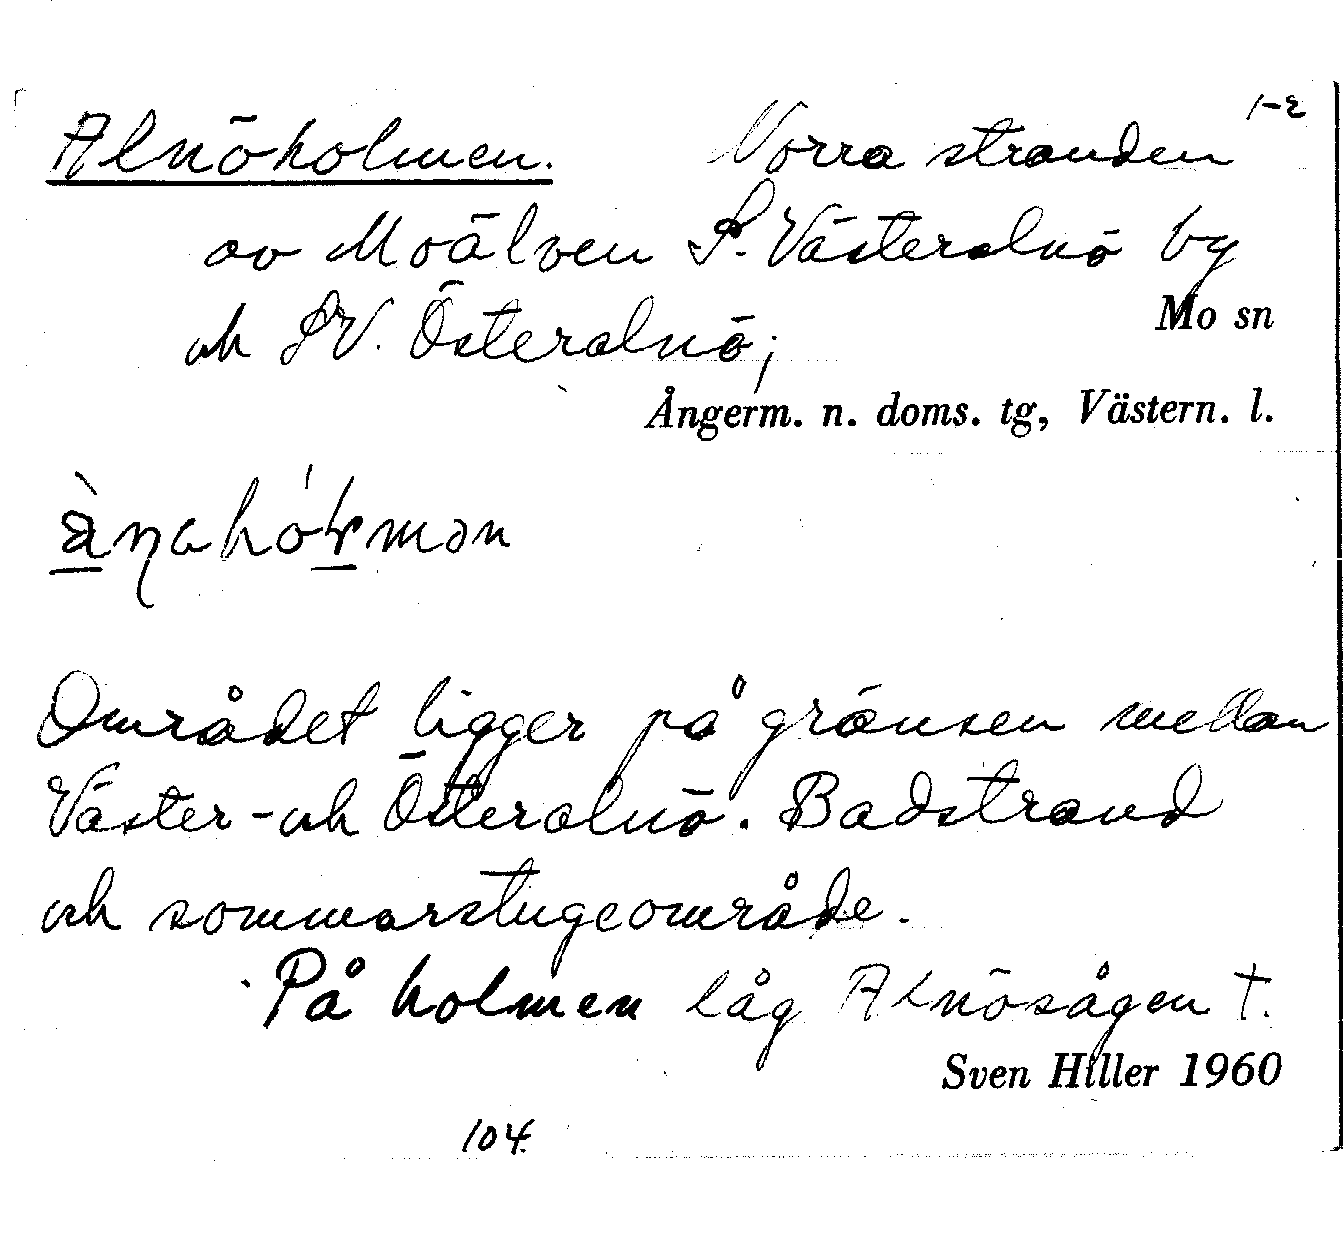 1-2
Alnöholmen. Norra stranden
av Moälven S. Västeralnö by
och SV. Österalnö;
Mo sn
Ångerm. n. doms. tg, Västern. l.
Området ligger på gränsen mellan
Väster- och Österalnö. Badstrand
och sommarstugeområde.
På holmen låg Alnösågen †.
Sven Hiller 1960
104.